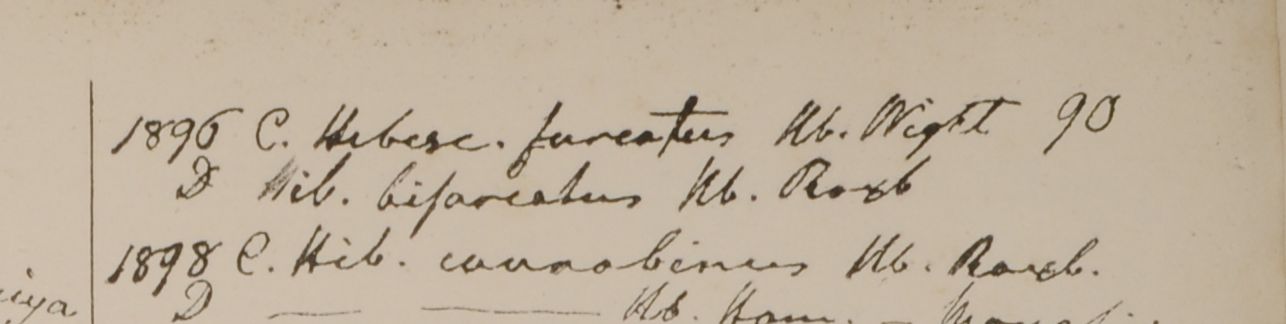 1896 C. Hibisc. furcatus Hb. Wight 90
D Hib. bifurcatus Hb. Roxb
1898 C. Hib. cannabinus Hb. Roxb.
D — — Hb. Ham. —